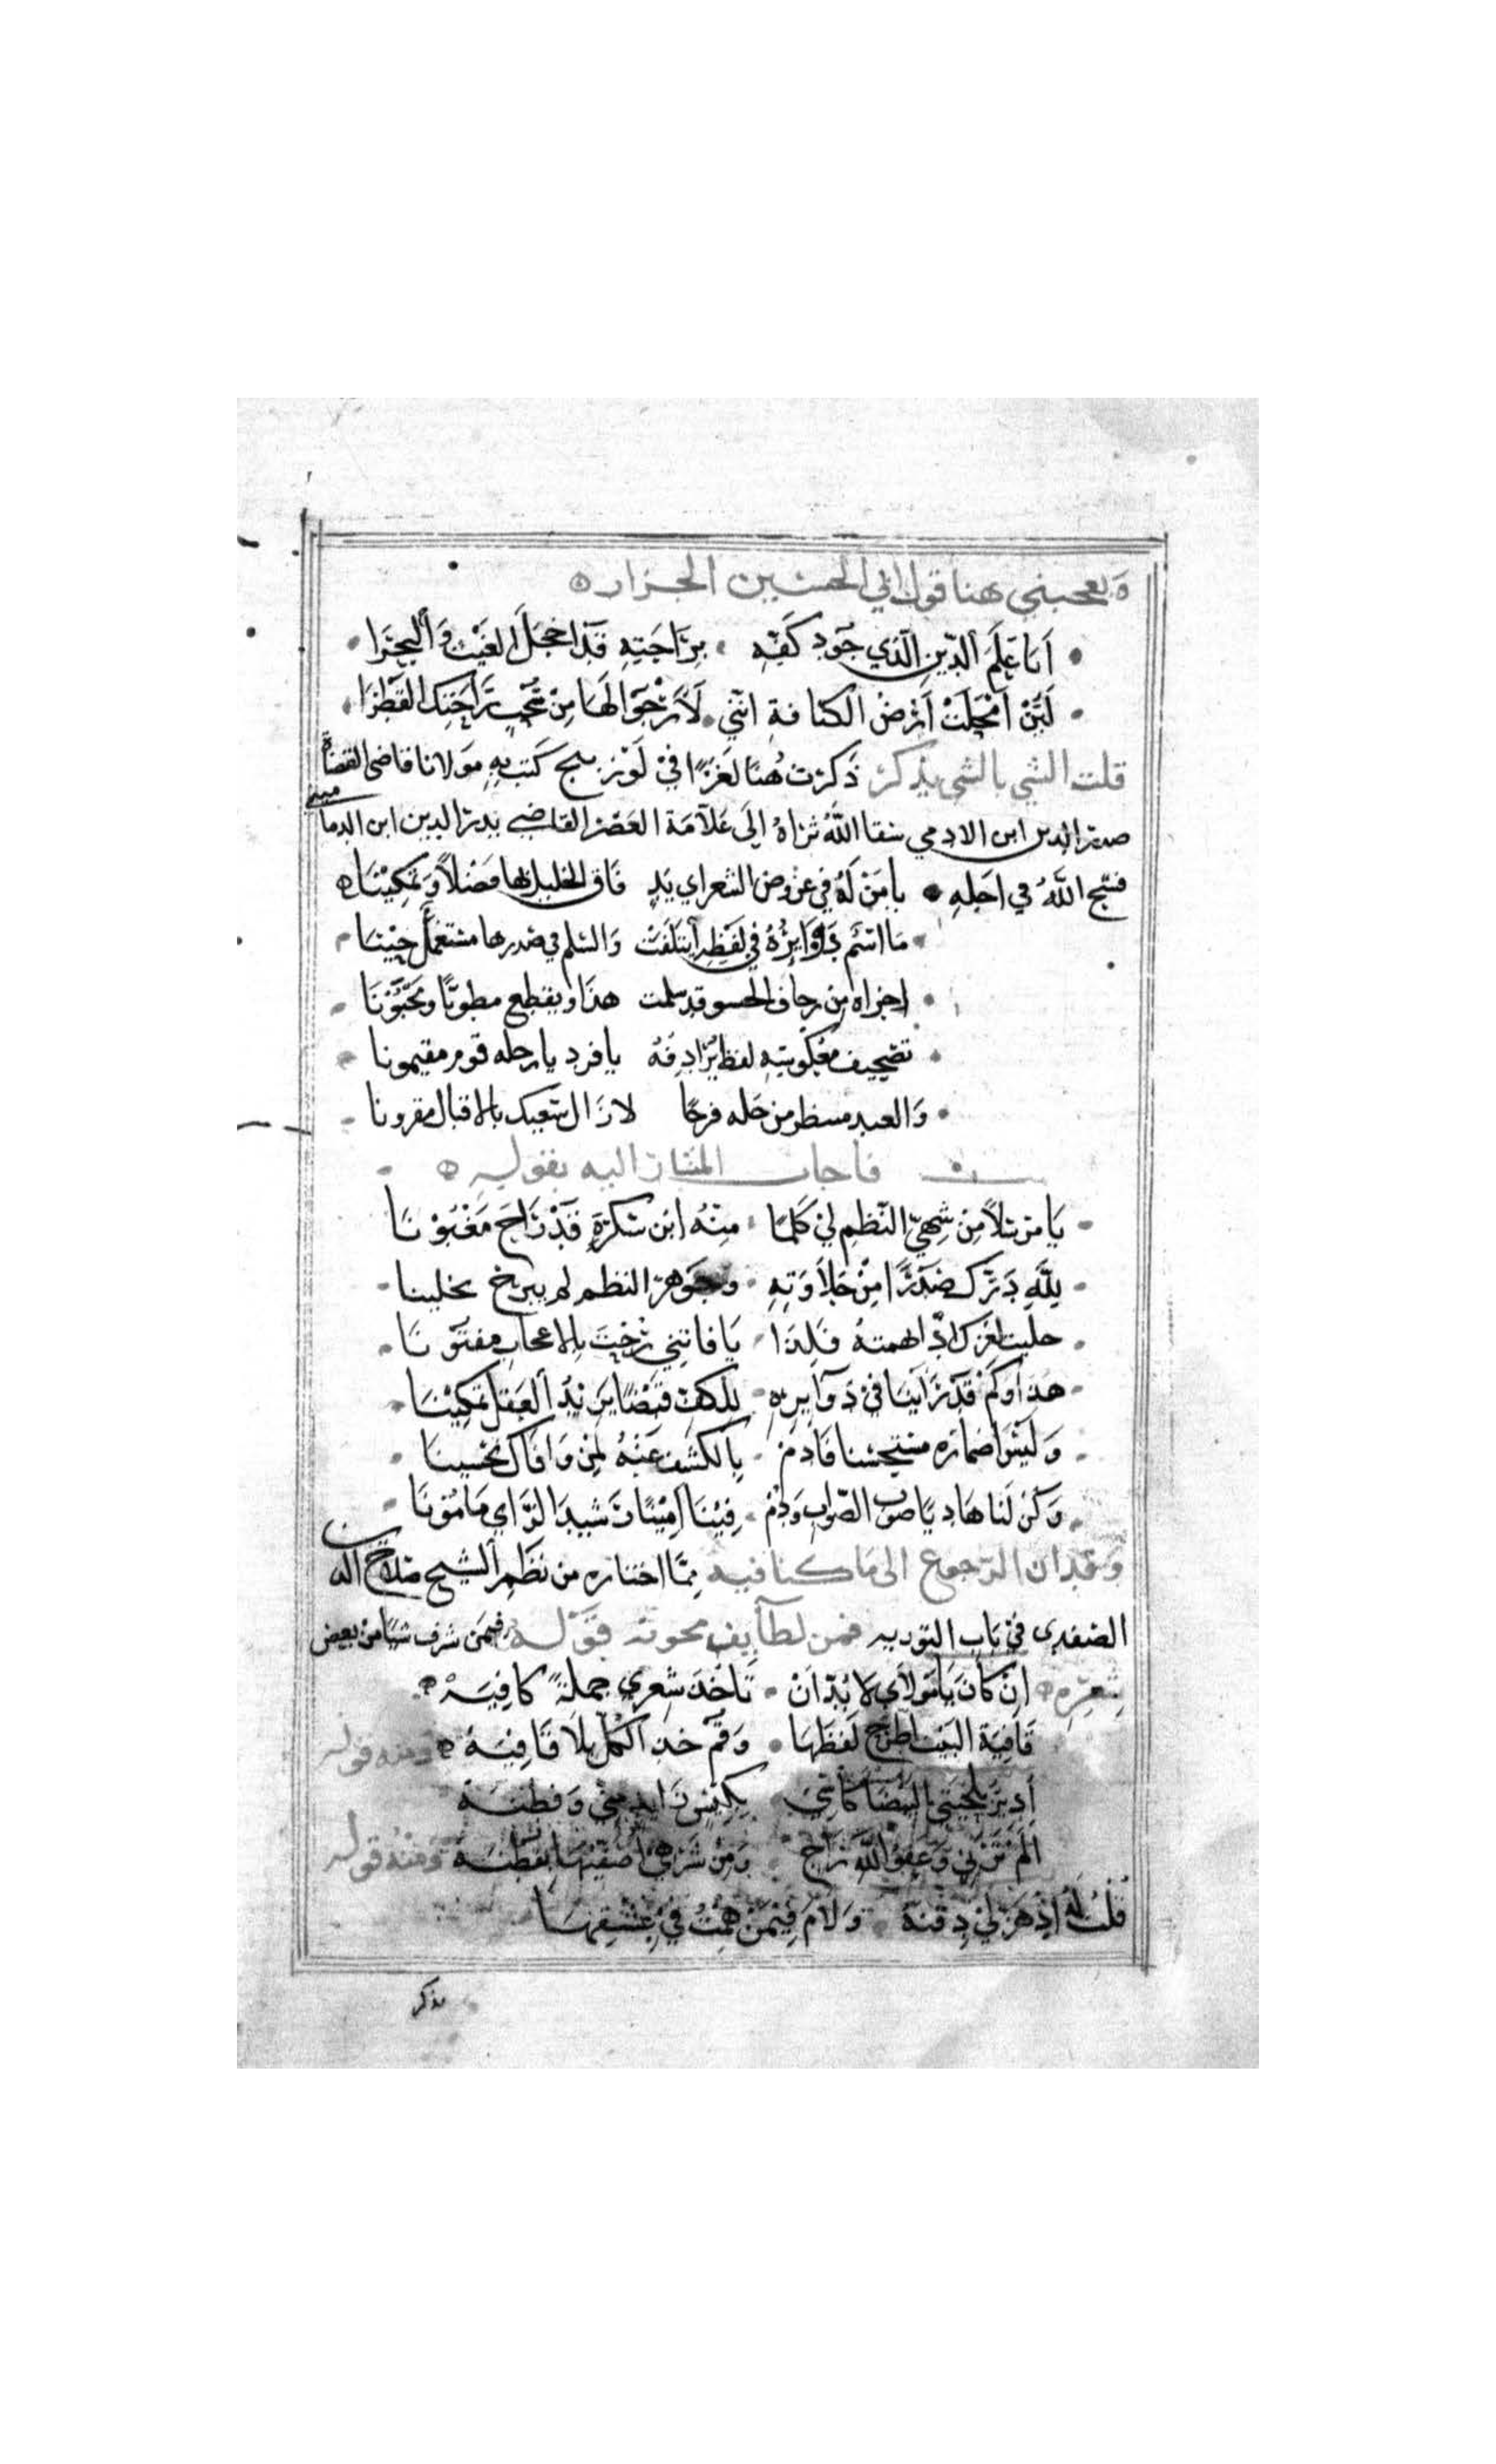 ويعجبني هنا قول ابي الحسين الجزار
أيا علم الدين الذي جود كفه براحته قد اخجل الغيث والبحرا
لئن امحلت أرض الكنافة انني لأرجو لها من سحب راحتك القطرا
قلت الشي بالشي يذكر ذكرت هنا لغزا في لوزينج كتب به مولانا قاضى القضاة
صدر الدين ابن الادمي سقا الله ثراه إلى علامة العصر القاضي بدر الدين ابن الدماميني
فسح الله في اجله يا من له في عروض الشعر اي يد فاق الخليل بها فضلا وتمكينا
ما اسم دوائره في لفظه ايتلفت والسلم في صدرها مستعمل حينا
اجزاه من زحاف الحسو قد سلمت هذا ويقطع مطويا ومخبونا
تصحيف معكوسه لفظ يرادفه يا فرد يا رحله قوم مقيمونا
والعبد منتظر من حله فرحا لا زال سعيك بالاقبال مقرونا
فأجاب المشار اليه بقوله
يا مرسلا من شهي النظم لي كلما منه ابن سكرة قد راح مغبونا
لله درك صدرا من حلاوته وجوهر النظم لم يبرح يحلينا
حليت لغزك اذ ابهمته فلذا يا فاتني رحت بالاعجاب مفتونا
هذا وكم قد رأينا في دوايره للكف قبضا يزيد العقل تمكينا
وليس اضماره مستحسنا فادم بالكشف عنه لمن وافاك تحسينا
وكن لنا هاديا صوب الصواب ودم فينا امينا رشيد الراي مامونا
وقد ان الرجوع الى ما كنا فيه مما اختاره من نظم الشيخ صلاح الدين
الصفدى في باب التوريه فمن لطايف مجونه قوله فيمن سرق شيا من بعض
شعره ان كان يا مولاي لا بد ان تأخذ شعري جملة كافيه
قافية البيت اطرح لفظها وقم خذ الكل بلا قافيه ومنه قوله
ادير بلحيتي البيضا كاسي بكيس زايد مني وفطنه
الم ترني وعفو الله راج ومن شرهي اصفيها بقطنه ومنه قوله
قلت له اذ هز لي دقنه ولام فيمن همت في عشقها
يذكر